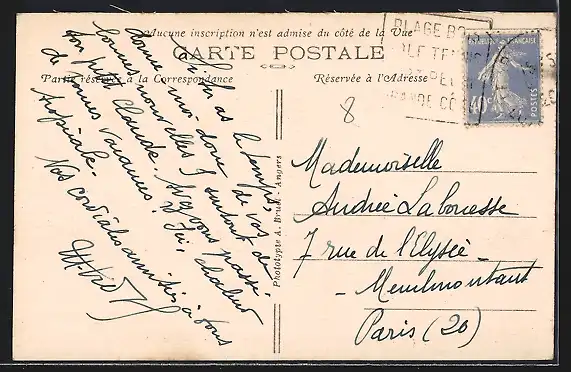 Aucune inscription n'est admise du côté de la Vue
CARTE POSTALE
Partie réservée à la Correspondance
Réservée à l'Adresse
PLAGE
GOLF TEN
GRANDE CÔ
REPUBLIQUE FRANÇAISE
40c
POSTES
8
Si tu as le temps,
donne moi donc de vos
bonnes nouvelles & surtout de
ton petit Claude. Avez vous passé
de bonnes vacances? Ici, chaleur
tropicale.
Nos cordiales amitiés à tous
Phototypie A. Bruel - Angers
Mademoiselle
Andrée Labouesse
7 rue de l'Elysée
- Menilmontant
Paris (20)